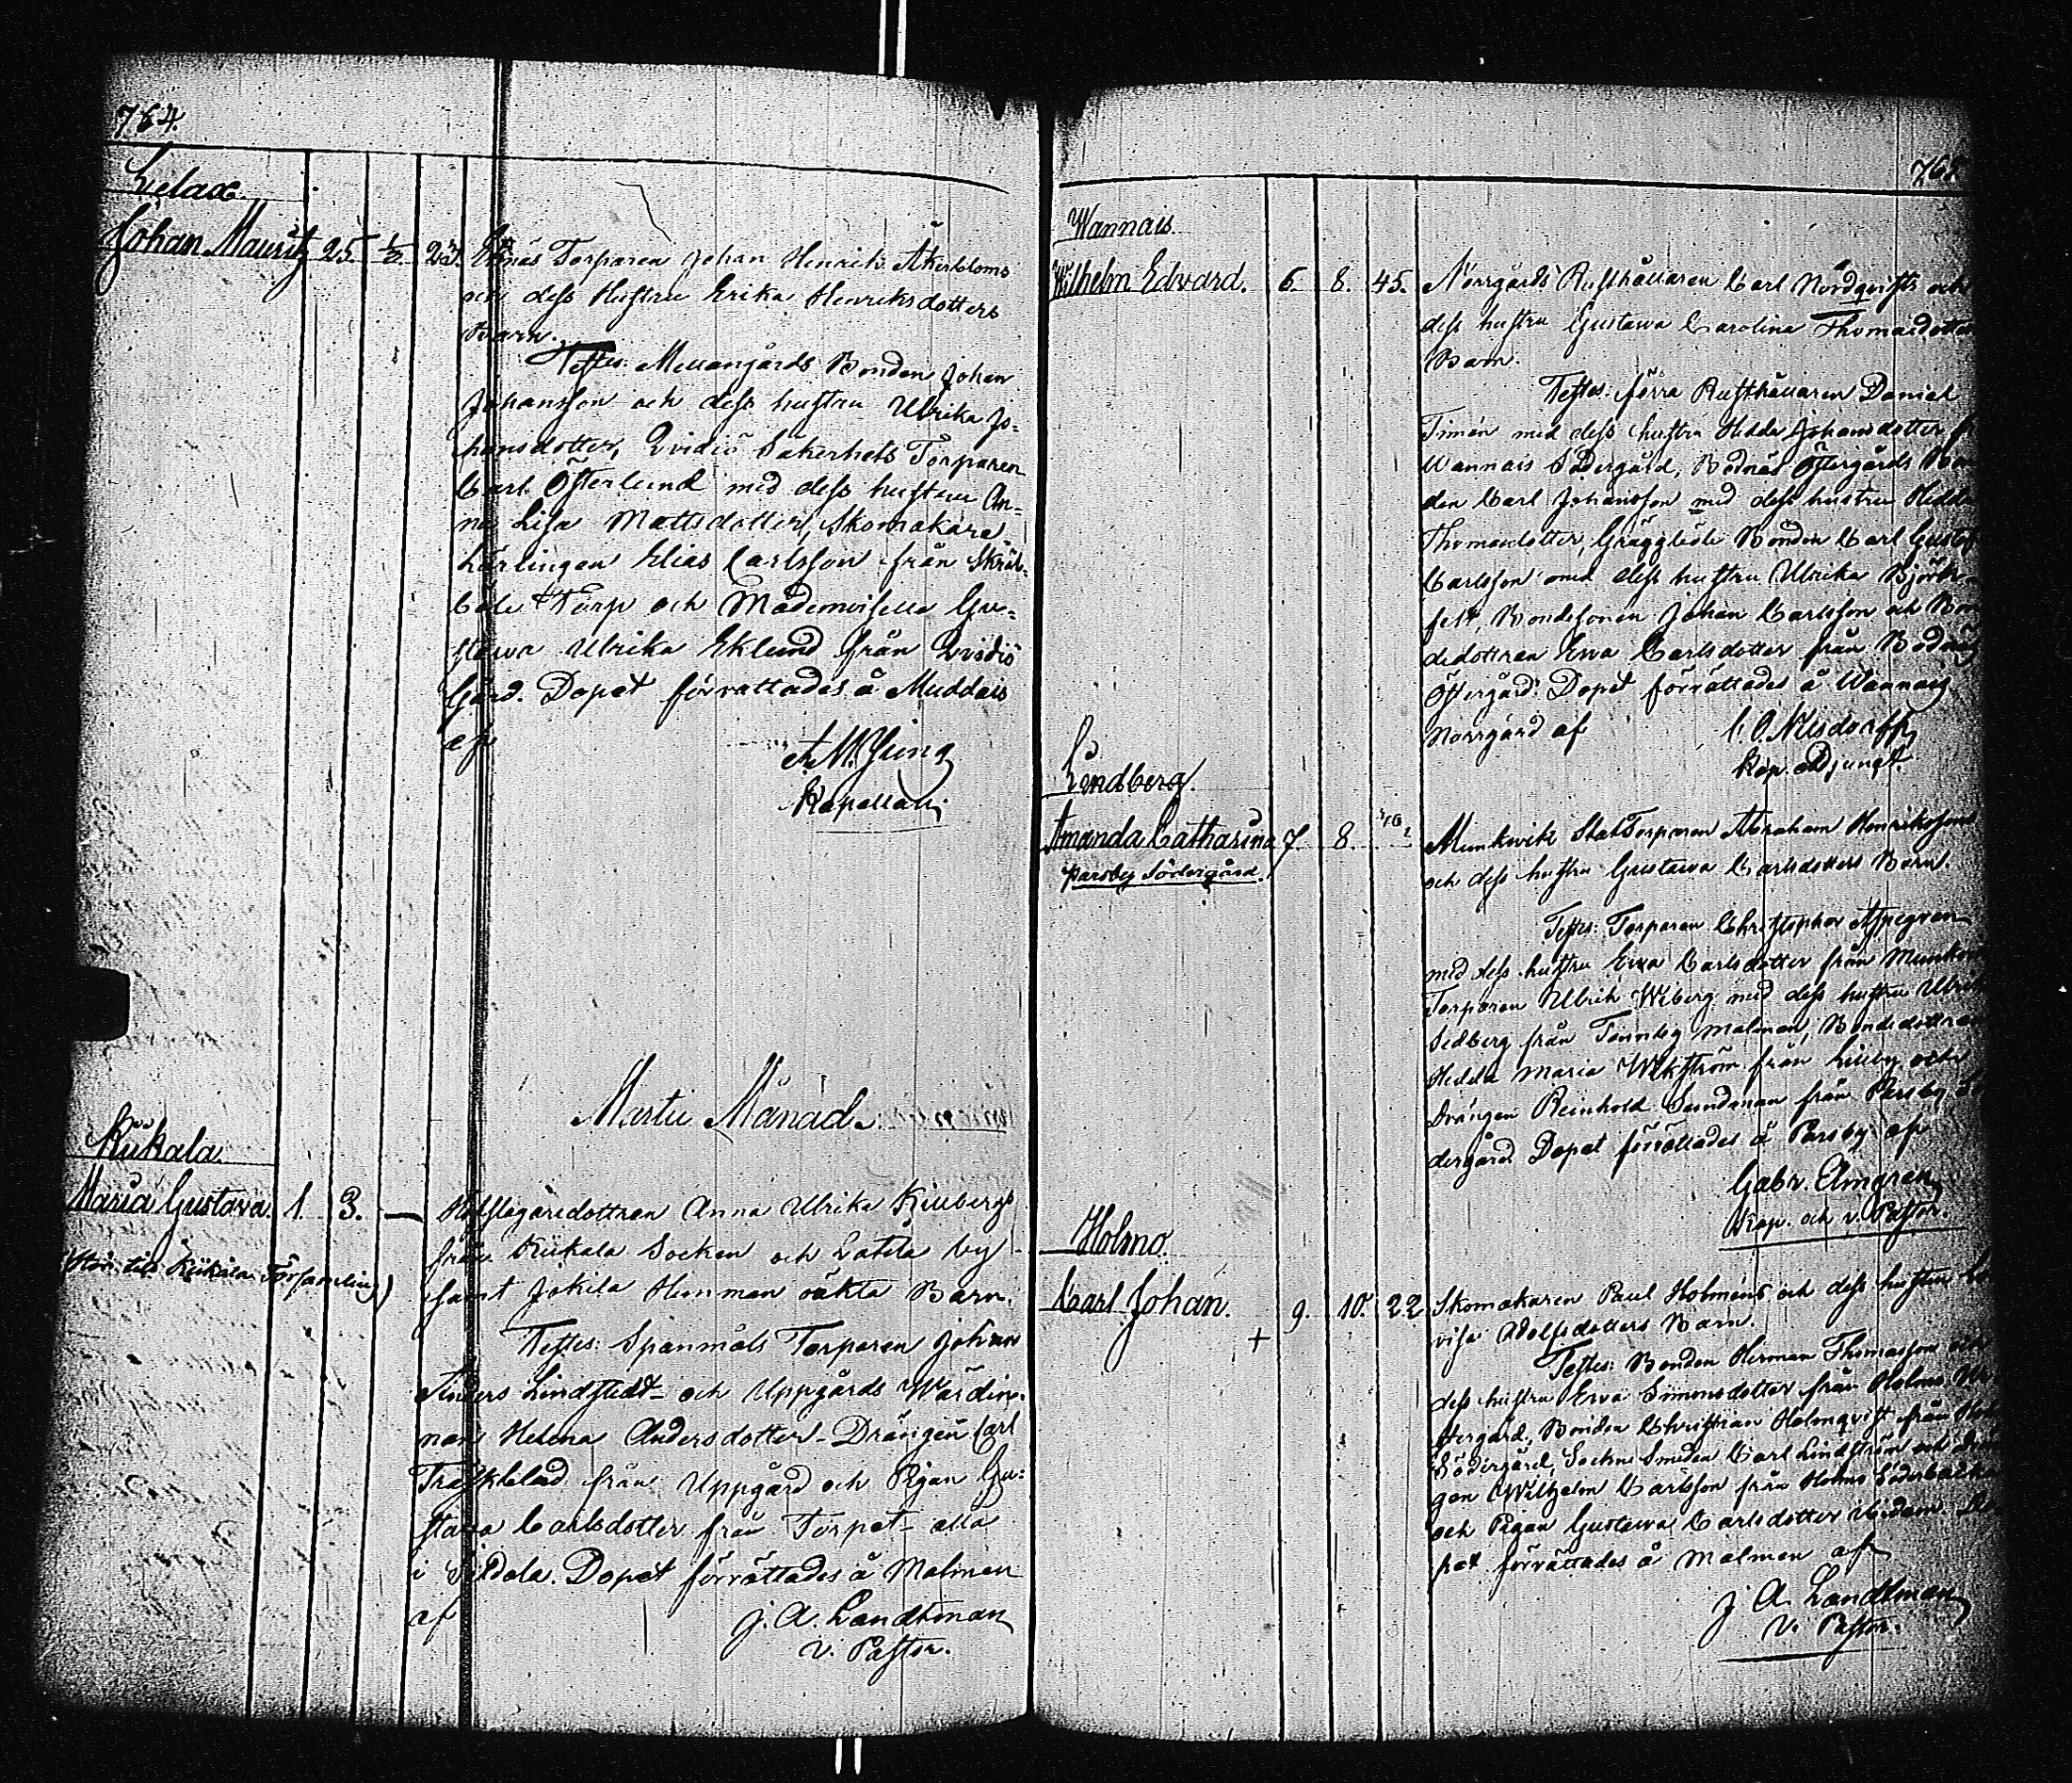 764.
Lelax.
Johan Mauritz 25. 23. Torparen Johan Henrik Åkerbloms
och dess Hustru Erika Henriksdotters
Barn.
Testes: Mellangårds Bonden Johan
Johansson och dess hustru Ulrika Jo-
hansdotter, Qvidiö Säkerhets Torparen
Carl Österlund med dess hustru An-
na Lisa Mattsdotter, Skomakare
Lärlingen Elias Carlsson från Skräb-
böle Torp och Mademoiselle Gu-
stava Ulrika Eklund från Qvidiö
Gård. Dopet förrättades å Muddais
af
Kapellan.
Martii Månad.
Kiikala.
Maria Gustava. 1. 3. — dottren Anna Ulrika
från Kiikala Socken och by
(Hör till Kiikala Församling)
samt Jokila Hemman oäkta Barn.
Testes: Spanmåls Torparen Johan
Anders Lindstedt och Uppgårds Wärdin-
nan Helena Andersdotter - Drängen Carl
Träskblad från Uppgård och Pigan Gu-
stava Carlsdotter från Torpet - alla
i Dopet förrättades å Malmen
af J. A. Landtman
V. Pastor.
Wannais
Wilhelm Edvard. 6. 8. 45. Norrgårds Rusthållaren Carl Nordqvists och
dess hustru Gustava Carolina Thomasdotters
Barn.
Testes: förra Rusthållaren Daniel
Timén med dess hustru Hedda Johansdotter
Wannais Södergård, Bodnäs Östergårds
den Carl Johansson med dess hustru Hedda
Thomasdotter, Gräggböle Bonden Carl Gustaf
Carlsson med dess hustru Ulrika Björk-
Bondesonen Johan Carlsson och
dedottren Ewa Carlsdotter från Bodnäs
Östergård. Dopet förrättades å Wannais
Norrgård af
Kap. Adjunct.
Lindberg.
Amanda Catharina 7. 8. Munkvik StatTorparen Abraham Henrikssons
Parsby Södergård.
och dess hustru Gustava Carlsdotters Barn.
Testes: Torparen Christopher Aspegren
med dess hustru Ewa Carlsdotter från
Torparen Ulrik Wiberg med dess hustru
Sedberg från Malmen, Bondedottren
Hedda Maria Wikström från Lilleby och
Drängen Reinhold Sundman från Parsby
dergård Dopet förrättades å Parsby af
Gabr. Elmgren
Kap. och v. Pastor.
Holmo.
Carl Johan. 9. 10. 22 Skomakaren Paul Holméns och dess hustru
+
visa Adolfsdotters Barn.
Testes: Bonden Herman Thomasson och
dess hustru Ewa Simonsdotter från Holmo
stergård, Bonden Christian Holmqvist från
Södergård, Sockne Smeden Carl Lindström och
gen Wilhelm Carlsson från Holmo Söderbacka
och Pigan Gustava Carlsdotter ibidem.
pet förrättades å Malmen af
J. A. Landtman
V. Pastor.